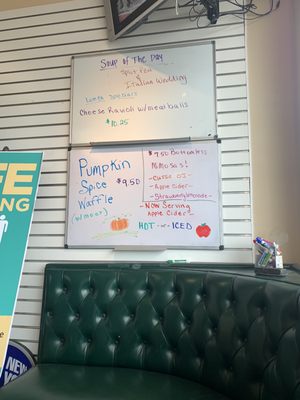 Soup of The Day
Split Pea
&
Italian Wedding
Lunch Specials
Cheese Ravioli w/meatballs
$10.25
Pumpkin
Spice $9.50
Waffle
(w/meat)
$9.50 Bottomless
Mimosas!
- Classic OJ -
- Apple Cider -
- Strawberry Lemonade -
- Now Serving
Apple Cider -
HOT - or - ICED
FE
NG
NEW